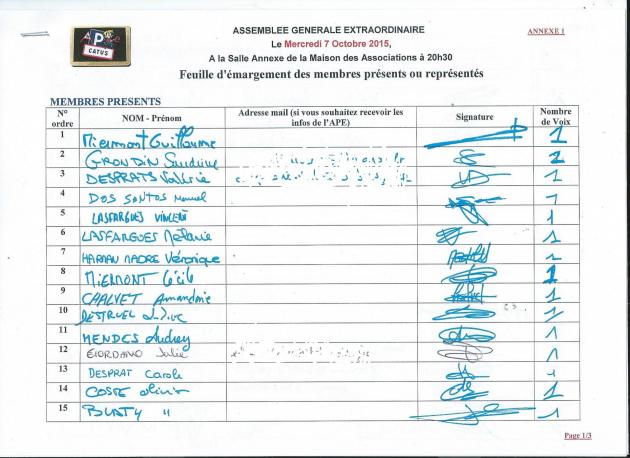 APE CATUS
ASSEMBLEE GENERALE EXTRAORDINAIRE
ANNEXE 1
Le Mercredi 7 Octobre 2015,
A la Salle Annexe de la Maison des Associations à 20h30
Feuille d'émargement des membres présents ou représentés
MEMBRES PRESENTS
N° ordre NOM - Prénom Adresse mail (si vous souhaitez recevoir les infos de l'APE) Signature Nombre de Voix
1 Miermont Guillaume 1
2 GRONDIN Sandrine 2
3 DESPRATS Valérie 1
4 DOS SANTOS Manuel 1
5 LASFARGUES VINCENT 1
6 LASFARGUES Mélanie 1
7 Véronique 1
8 MIERMONT Cécile 1
9 CHALVET Amandine 1
10 DESTRUEL 1
11 MENDES Audrey 1
12 GIORDANO Julie 1
13 DESPRAT Carole 1
14 COSTE Olivier 1
15 1
Page 1/3